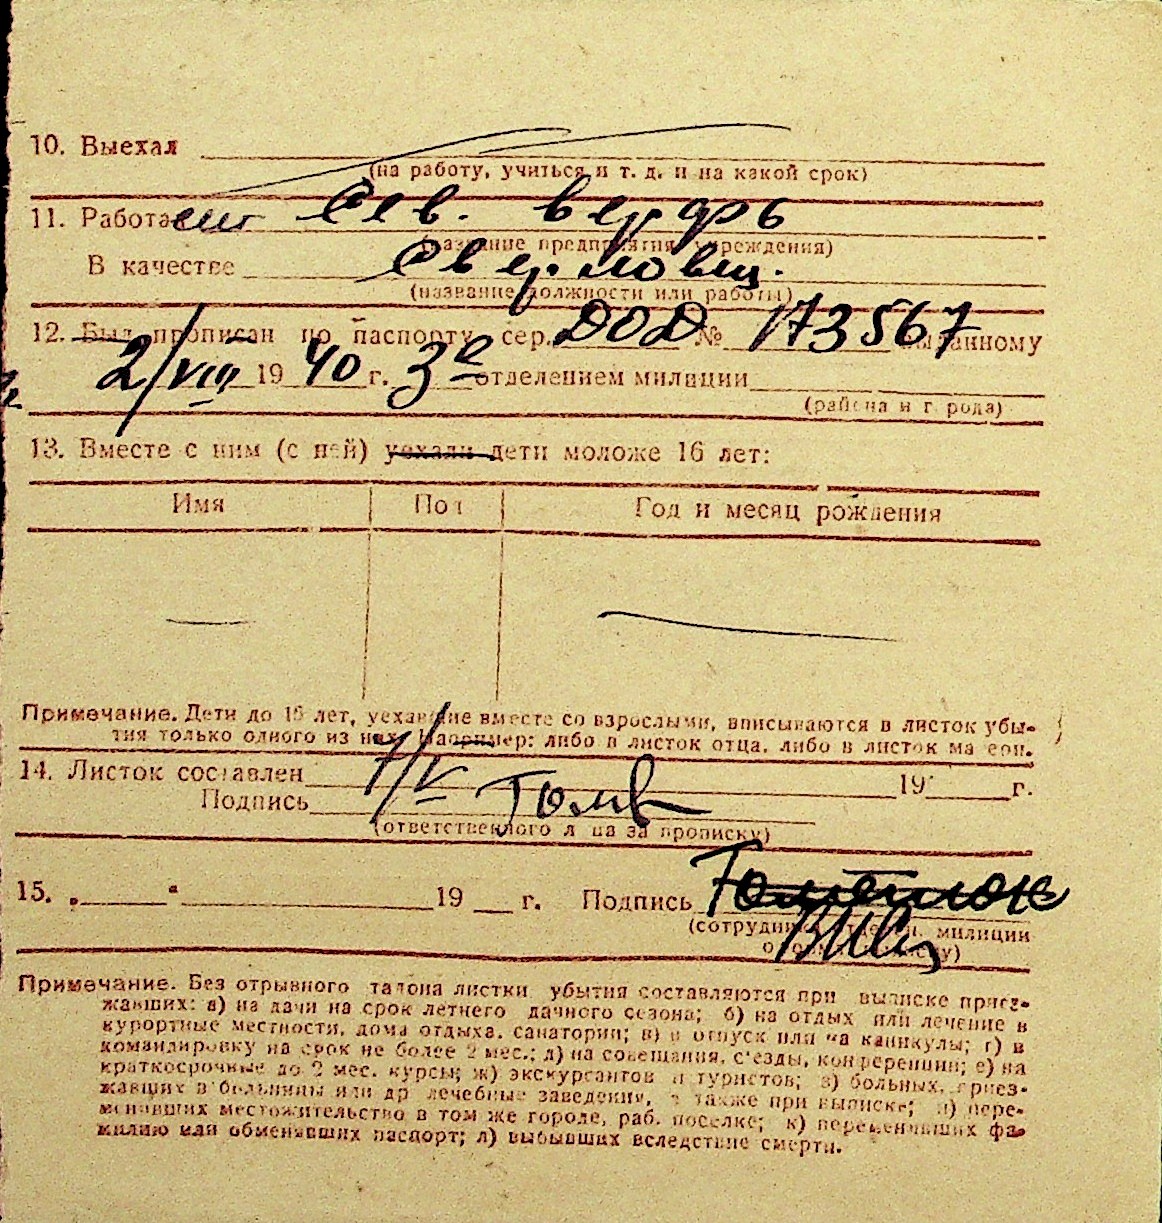 10. Выехал
(на работу, учиться и т. д. и на какой срок)
11. Работает Сев. верфь
(название предприятия, учреждения)
В качестве Сверловщ.
(название должности или работы)
12. Был прописан по паспорту сер. ДОД № 173567 выданному
2/VIII 1940 г. 3е отделением милиции
(района и города)
13. Вместе с ним (с ней) уехали дети моложе 16 лет:
Имя Пол Год и месяц рождения
Примечание. Дети до 16 лет, уехавшие вместе со взрослыми, вписываются в листок убы-
тия только одного из них. Например: либо в листок отца, либо в листок матери.
14. Листок составлен 7/V 19 г.
Подпись
(ответственного лица за прописку)
15. „ “ 19 г. Подпись
(сотрудника отделен. милиции
Примечание. Без отрывного талона листки убытия составляются при выписке приез-
жавших: а) на дачи на срок летнего дачного сезона; б) на отдых или лечение в
курортные местности, дома отдыха, санатории; в) в отпуск или на каникулы; г) в
командировку на срок не более 2 мес.; д) на совещания, с'езды, конференции; е) на
краткосрочные до 2 мес. курсы; ж) экскурсантов и туристов; з) больных, приез-
жавших в больницы или др лечебные заведения, а также при выписке; и) пере-
менивших местожительство в том же городе, раб. поселке; к) переменивших фа-
милию или обменявших паспорт; л) выбывших вследствие смерти.